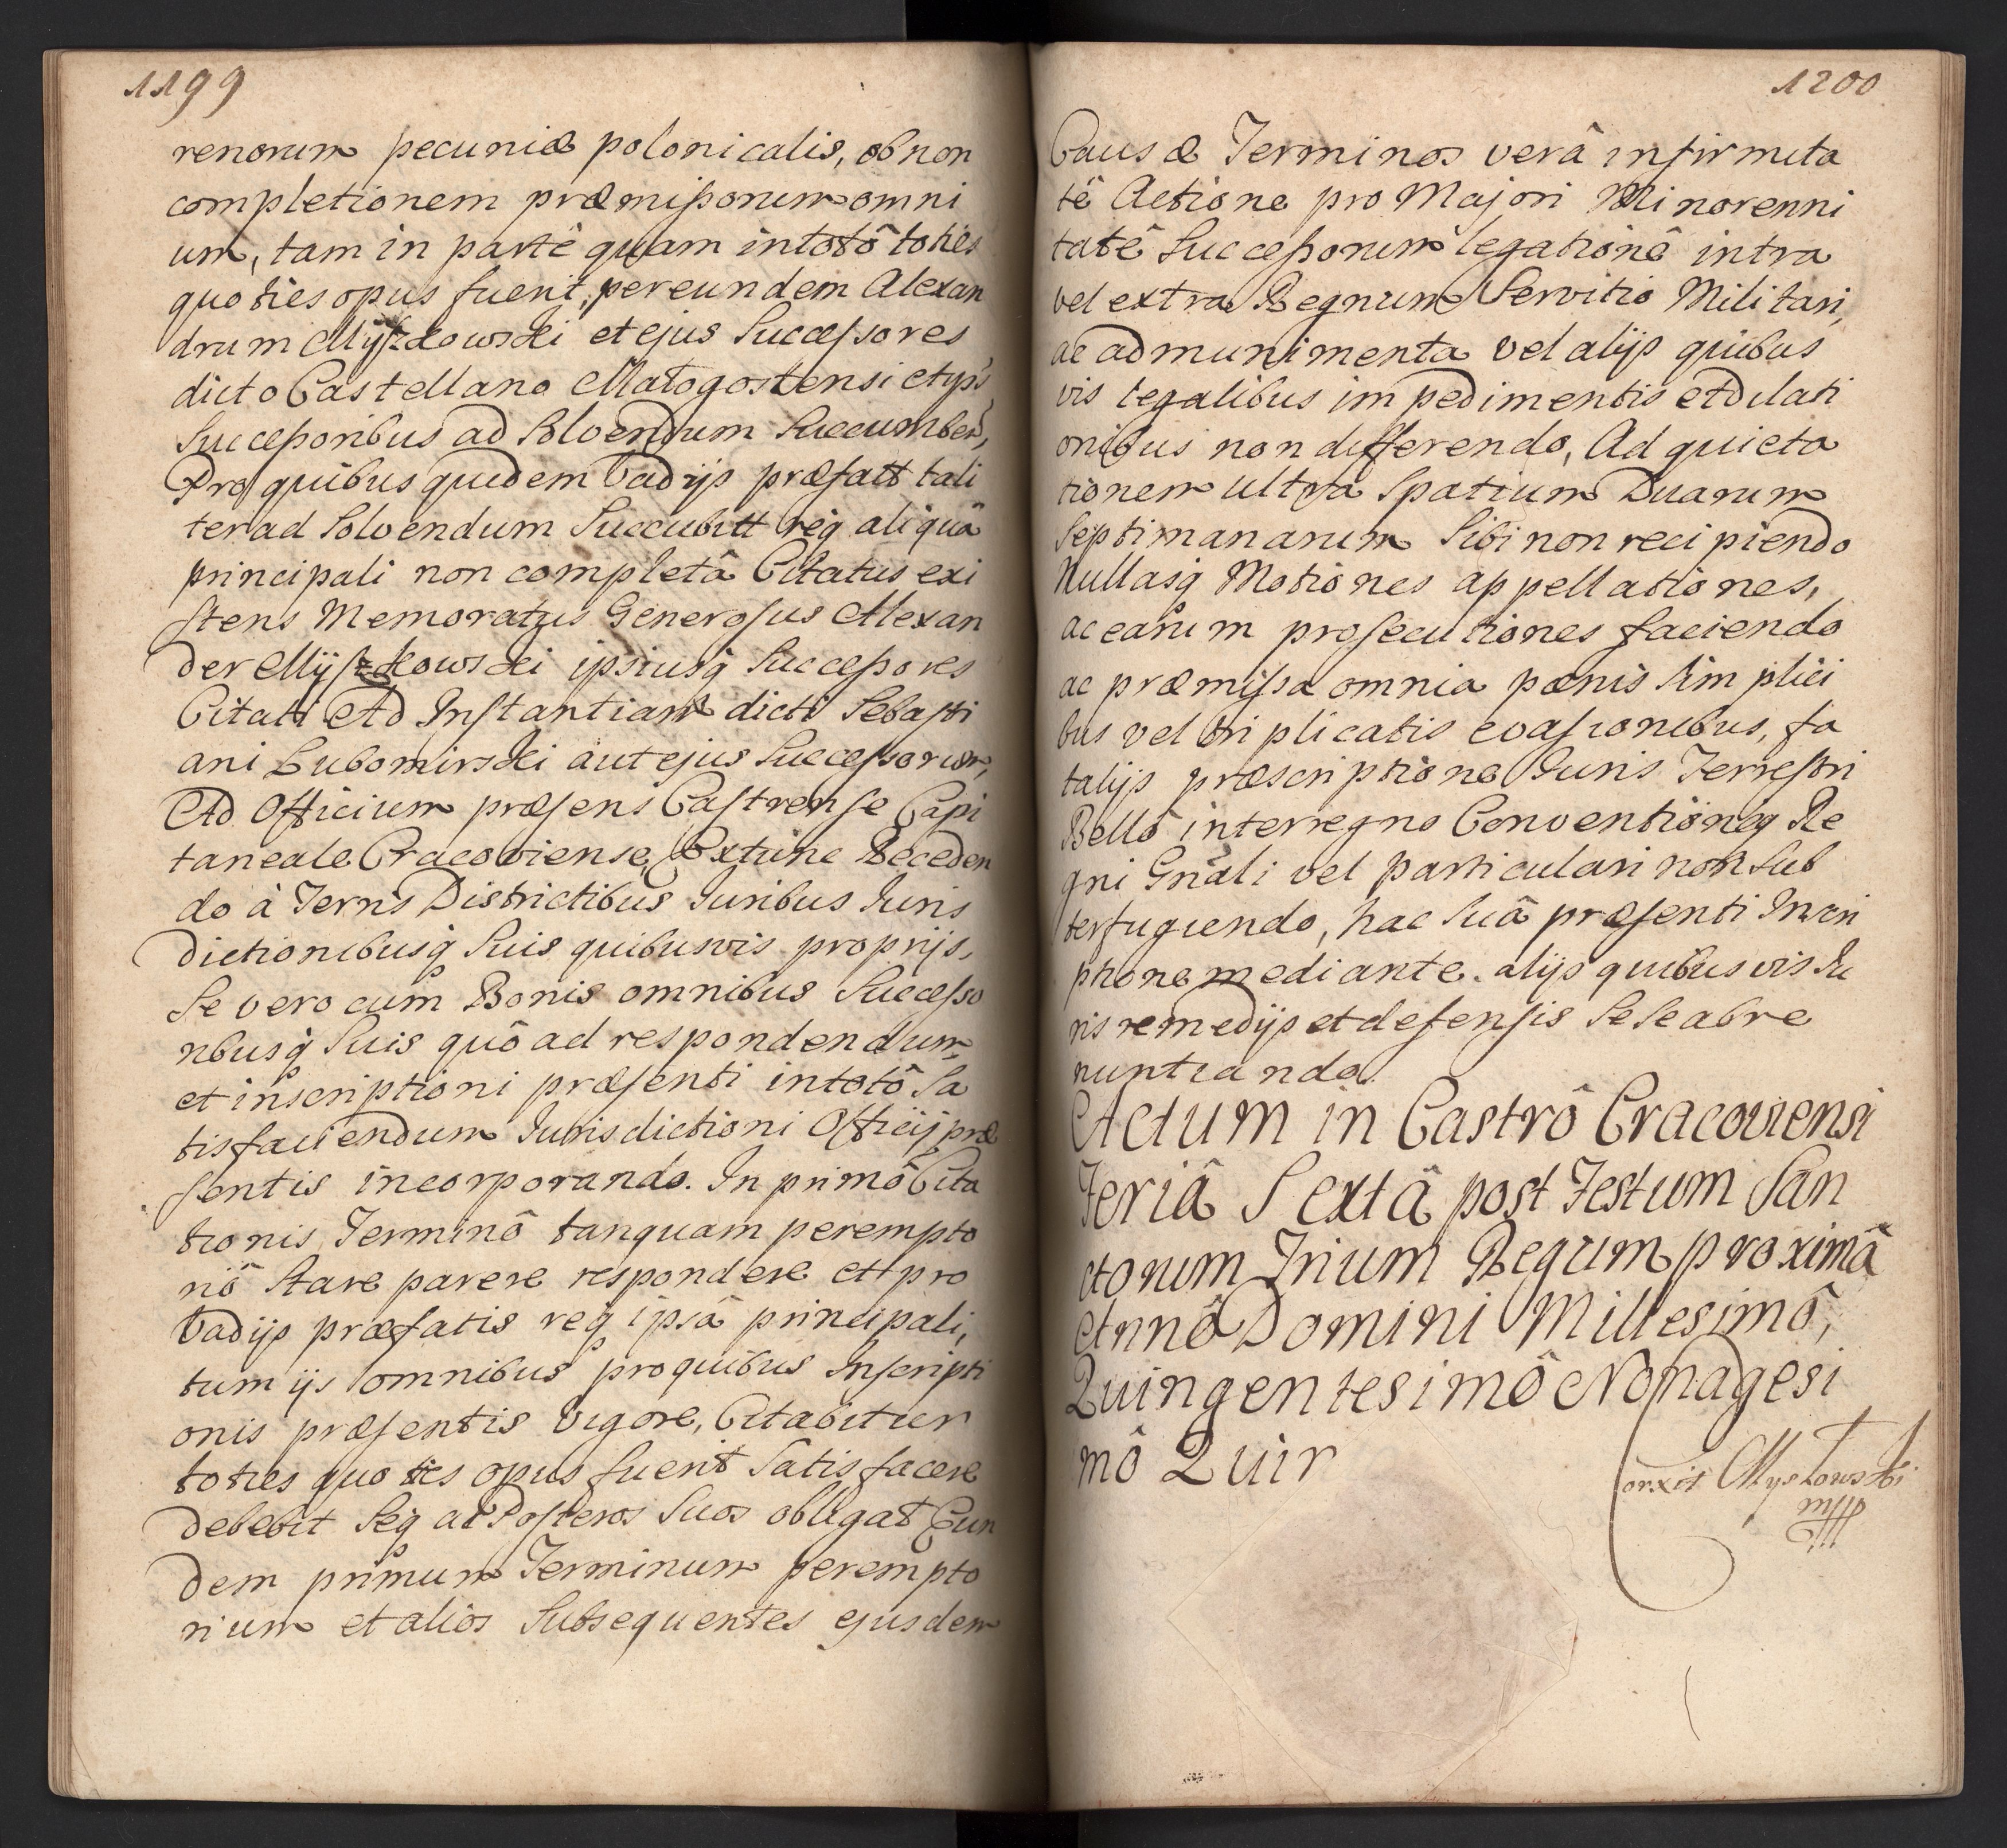 1199
renorum pecuniæ polonicalis, ob non
completionem præmissorum omni
um, tam in partê quam intotô toties
quoties opus fuerit, per eundem Alexan
drum Myszkowski et ejus Successores
dicto Castellano Małogostensi et ejus
Successoribus ad Solvendum Succumben,
Pro quibus quidem Vadijs præfatt tali
ter ad Solvendum Succubitt req aliquâ
principali non completâ Citatus exi
stens Memoratus Generosus Alexan
der Myszkowski ipsiusq Successores
Citati Ad Instantiam dicti Sebasti
ani Lubomirski aut ejus Successorum,
Ad Officium præsens Castrense Capi
taneale Cracoviense, Extunc Receden
do à Terris Districtibus Iuribus Iuris
dictionibusq Suis quibusvis proprijs,
Se vero cum Bonis omnibus Successo
ribusq Suis quô ad respondendum,
et inscriptioni præsenti intotô Sa
tisfaciendum Iurisdictioni Officij præ
sentis incorporando. In primô Cita
tionis Terminô tanquam perempto
riô Stare parere respondere et pro
Vadijs præfatis req ipsâ principali,
tum ijs omnibus pro quibus Inscripti
onis præsentis vigore, Citabitur
toties quoties opus fuerit Satisfacere
debebit Seq ac Posteros Suos obligat Eun
dem primum Terminum perempto
rium et alios Subsequentes ejusdem
1200
Causæ Terminos verâ infirmita
tê Actione pro Majori Minorenni
tatê Successorum legationê intra
vel extra Regnum Servitio Militari,
ac ad munimenta vel alijs quibus
vis legalibus impedimentis et dilati
onibus non differendo, Ad quieta
tionem ultra Spatium Duarum
Septimanarum Sibi non recipiendo
Nullasq Motiones appellationes,
ac earum prosecutiones faciendo
ac præmissa omnia pœnis Simplici
bus vel triplicatis evasionibus, fa
talijs præscriptione Iuris Terrestri
Bellô interregno Conventioneq Re
gni Gnali vel particulari non Sub
terfugiendo, hac Suâ præsenti Inscri
ptione mediante. alijs quibusvis Iu
ris remedijs et defensis Se Se abre
nuntiando.
Actum in Castrô Cracoviensi
Feriâ Sextâ post Festum San
ctorum Trium Regum proximâ
Annô Domini Millesimô,
Quingentesimô Nonagesi
mô Quin
orxit Myszkowski
mpp